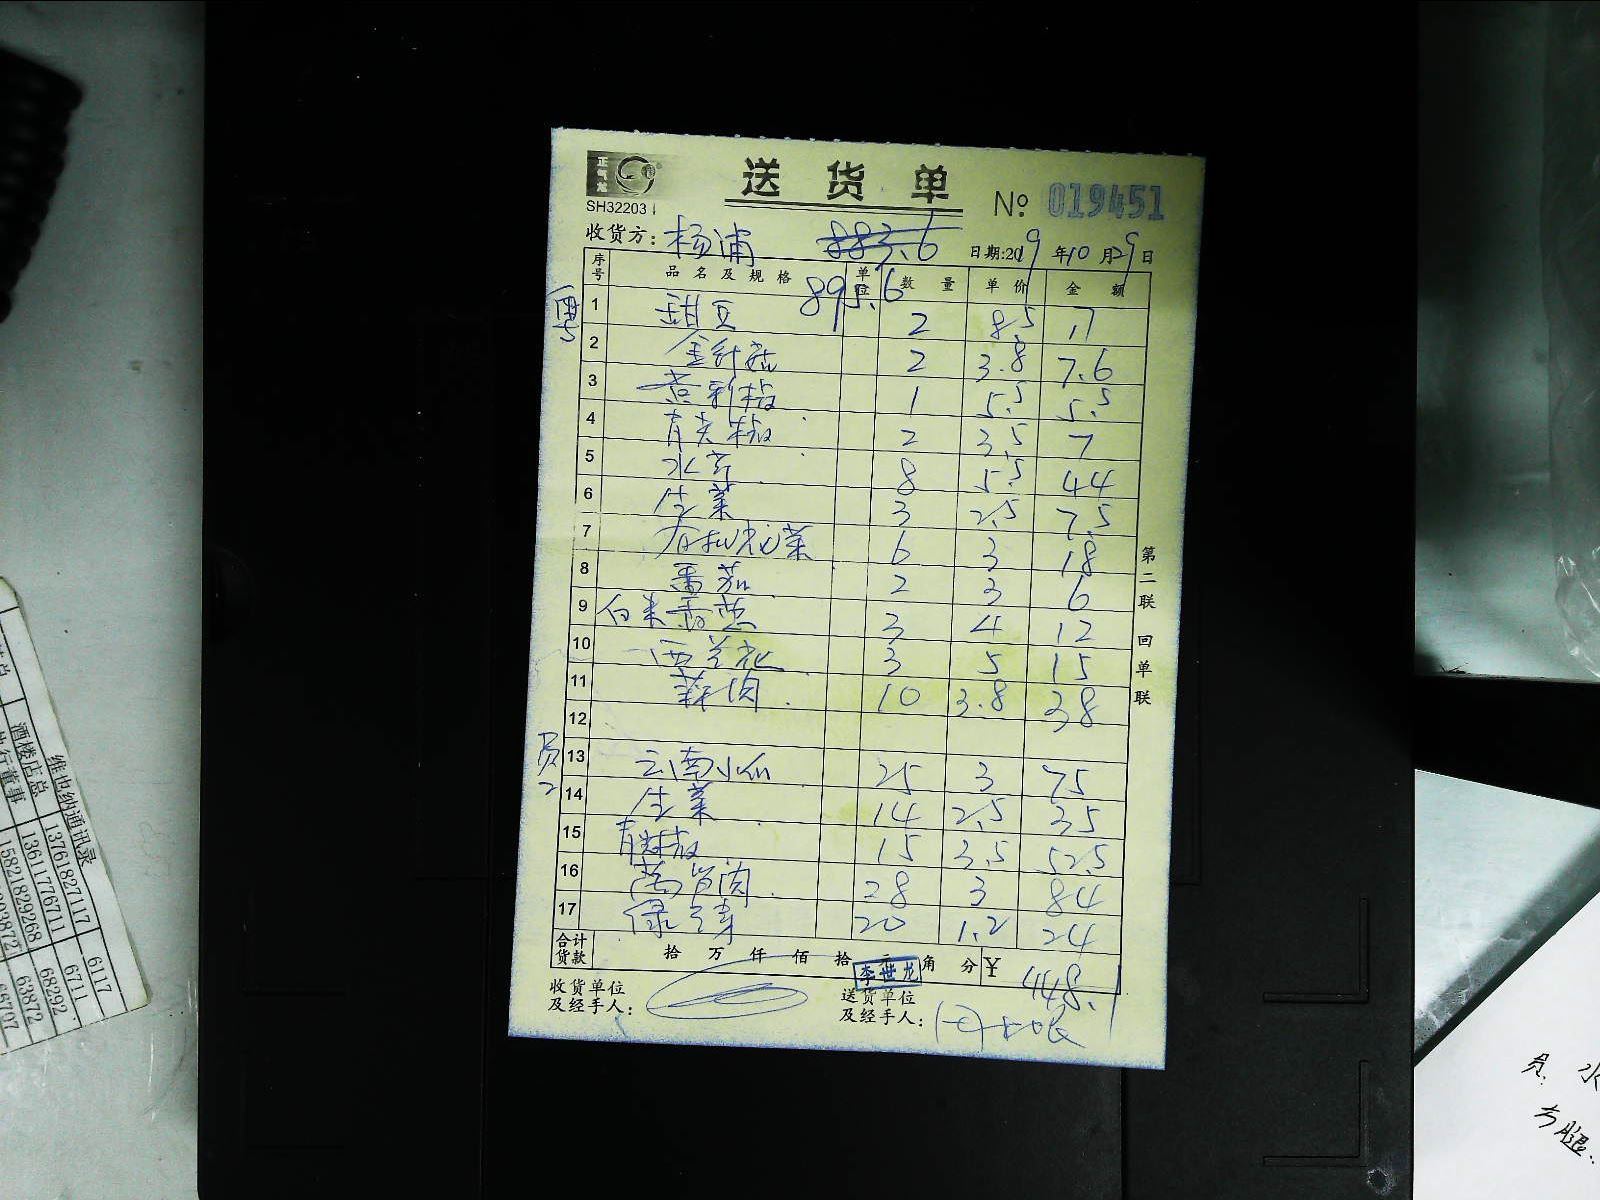 正气龙
SH32203
送货单
№ 019451
收货方: 杨浦 883.6 日期:2019年10月29日
895.6
序号 品名及规格 单位 数量 单价 金额
粤
1 甜豆 2 8.5 17
2 金针菇 2 3.8 7.6
3 黄彩椒 1 5.5 5.5
4 青尖椒 2 3.5 7
5 水芹 8 5.5 44
6 生菜 3 2.5 7.5
7 有机花菜 6 3 18
8 番茄 2 3 6
9 白米香葱 3 4 12
10 西兰花 3 5 15
11 蒜肉 10 3.8 38
12
员工
13 云南小瓜 25 3 75
14 生菜 14 2.5 35
15 青尖椒 15 3.5 52.5
16 莴笋肉 28 3 84
17 绿豆芽 20 1.2 24
合计货款 拾 万 仟 佰 拾 元 角 分 ¥ 448.1
李世龙
收货单位及经手人:
送货单位及经手人:
第二联 回单联
维也纳通讯录
酒楼店总 13761827117 6117
执行董事 13611776711 6711
15821829268 68292
63872
66797
员: 水
方腿..